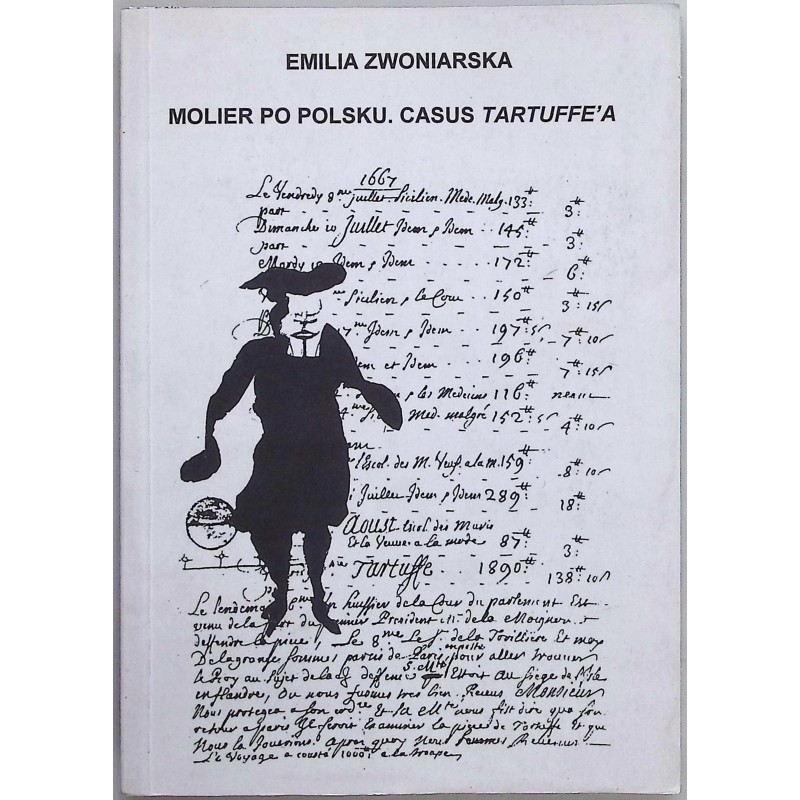 EMILIA ZWONIARSKA
MOLIER PO POLSKU. CASUS TARTUFFE'A
1667
Le Vendredy 8.me juillet. Sicilien. Mede. Malg. 133.#
part - - - 3#:
Dimanche 10 Juillet Idem & Idem .. 145#:
part - - - 3#:
Mardy Idem & Idem .... 172#:
6#:
Sicilien & le Cocu .. 150#
3#: 15s
Idem & Idem .. 197#: 5s
7#: 10s
et Idem .. 196#:
7#: 15s
& les Medecins 116#:
neant
Med. malgré 152#: 5s
4#: 10s
l'Escol. des M. Veuf. a la m. 159#
8#: 10s
Juillet Idem & Idem 289#:
18#:
Aoust Escol. des Maris
Et la Veuue a la mode 87#:
3#:
Tartuffe. 1890#:
138#: 10s
Le lendemain un huissier de la Cour du parlement Est
venu de la part du premier President Mr. de la Moignon
deffendre la piece, Le 8.me le Sr. de la Torilliere Et moy
Delagrange sommes partis de Paris en poste pour aller trouuer
le Roy au sujet de lad. deffence S. Mté Estoit au siege de l'Isle
en flandre, Ou nous fusmes tres bien Receus Monsieur
Nous protegea a son ordre Et sa Mté nous fist dire qua son
retour a Paris Il feroit Examiner la piece de Tartuffe Et que
Nous la Jouerions. Apres quoy Nous sommes Reuenus.
Le Voyage a cousté 1000# a la troupe